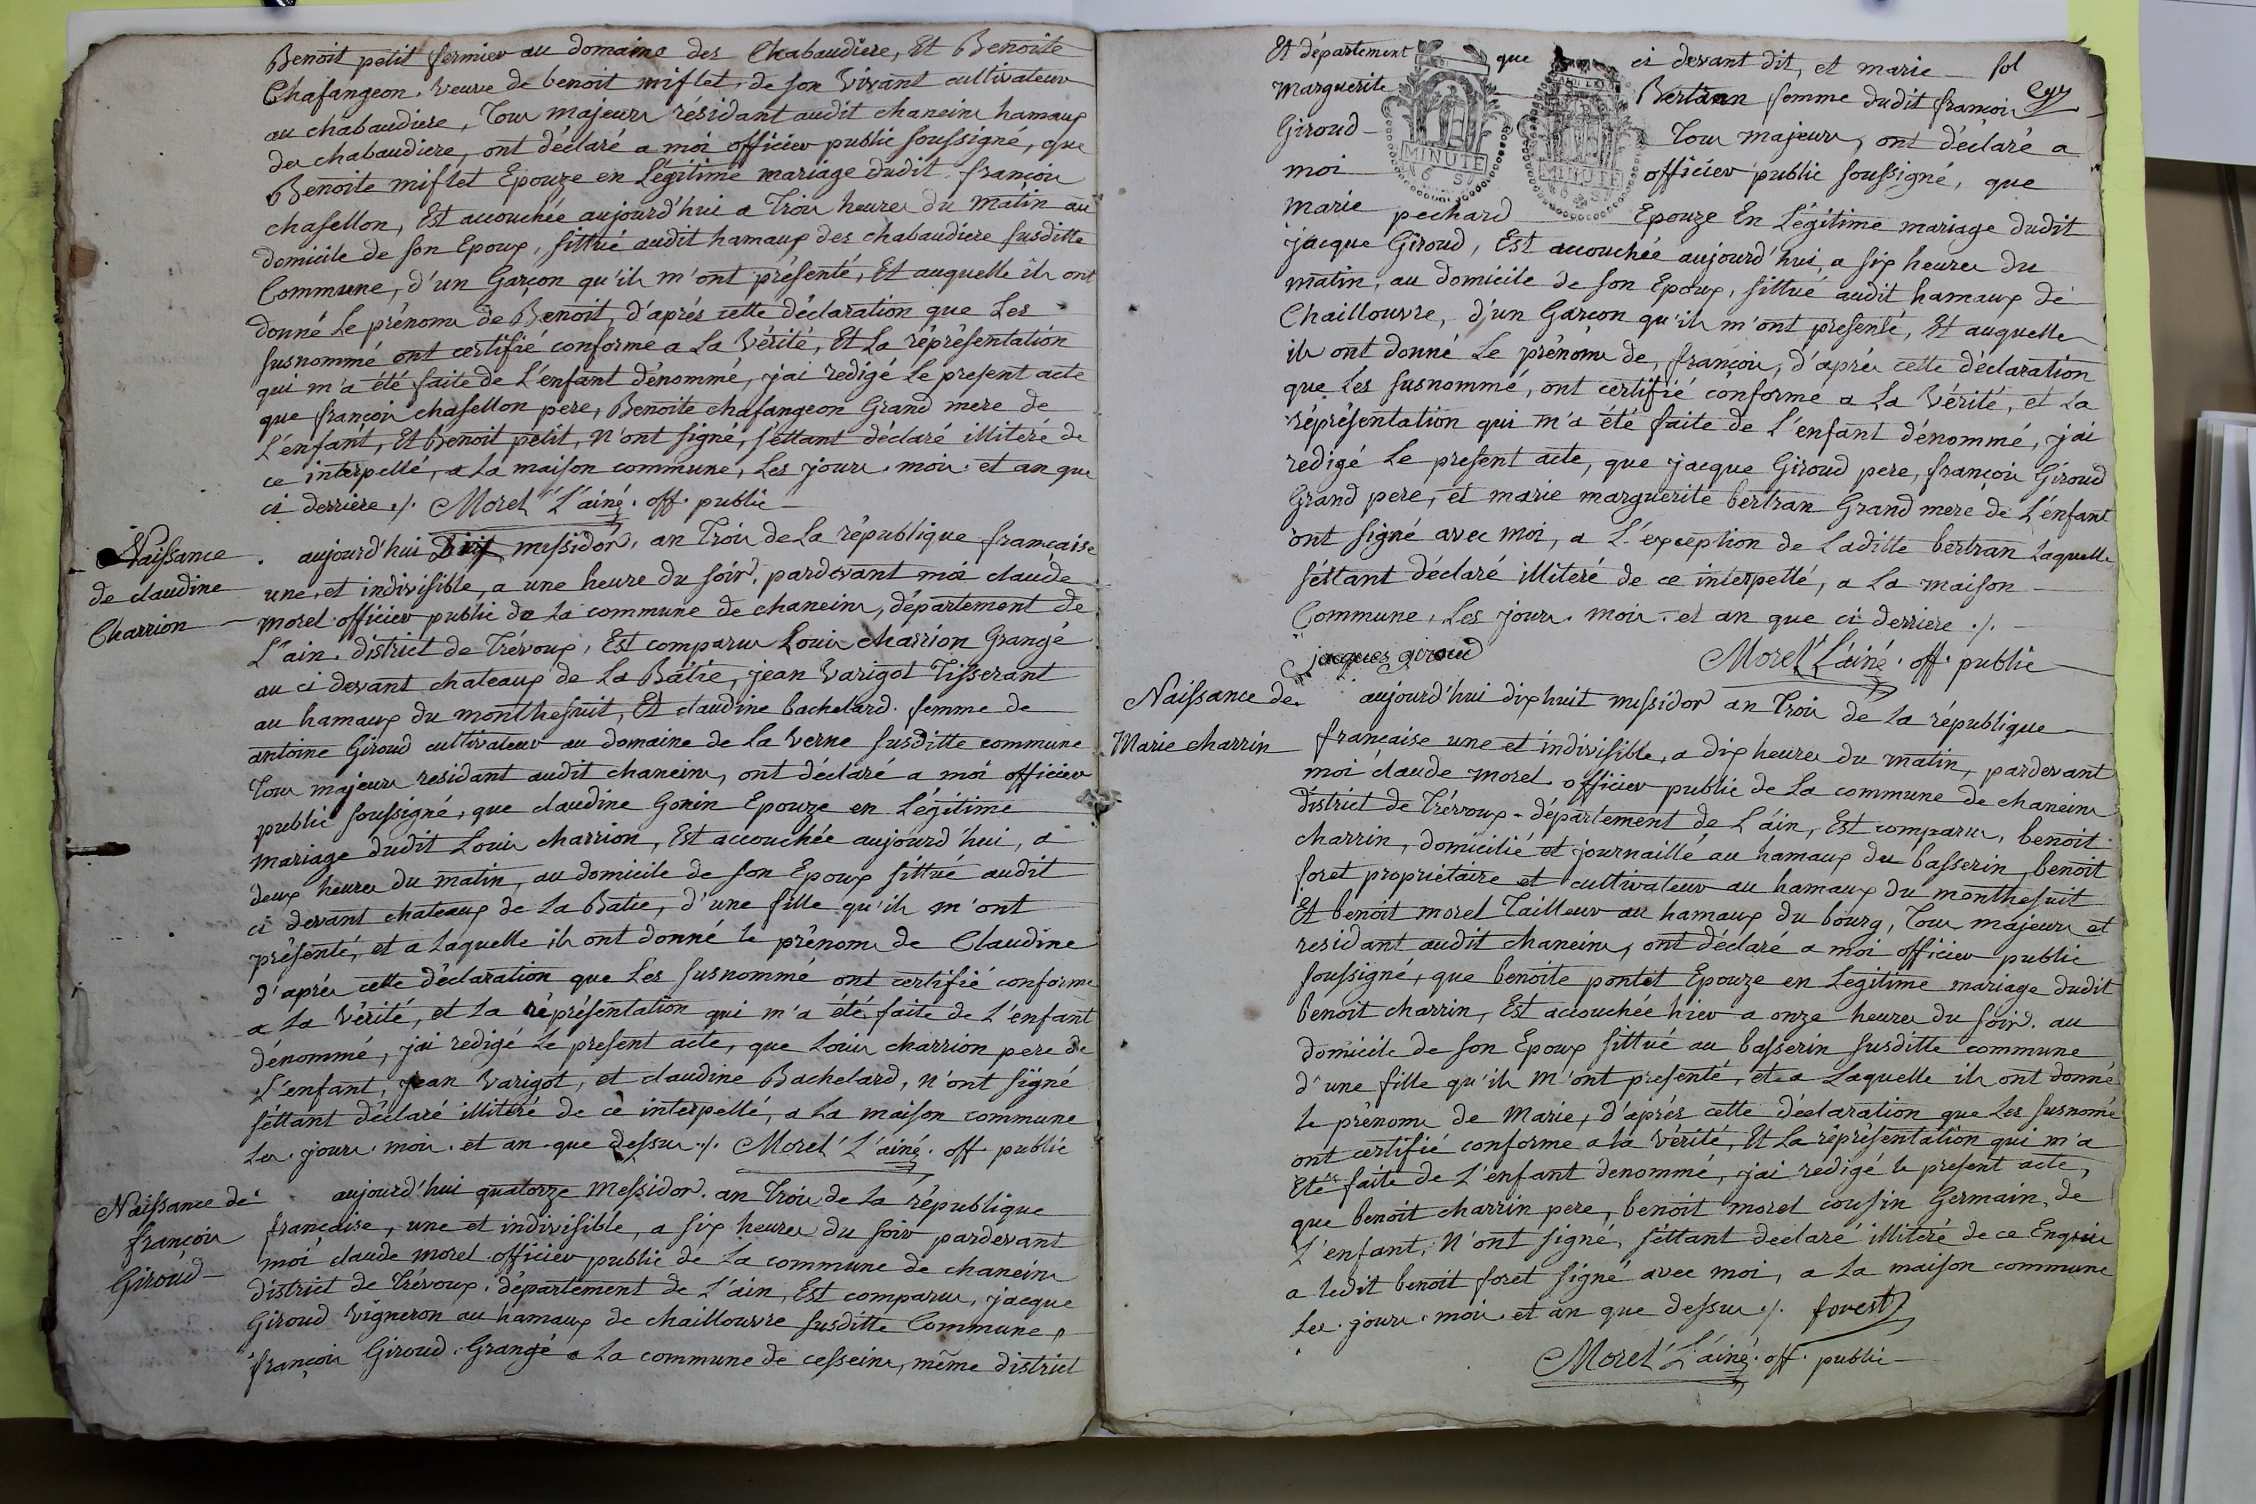 Benoit petit fermier au domaine des Chabaudiere, Et Benoite
Chafangeon. veuve de benoit miflet. de son vivant cultivateur
au chabaudiere, Tous majeurs résidant audit chaneins hamaux
des chabaudiere, ont déclaré a moi officier public soussigné, que
Benoite miflet Epouze en Légitime mariage dudit. françois
chafellon, Est accouchée aujourd'hui a Trois heures du matin au
domicile de son Epoux, sittué audit hamaux des chabaudiere susditte
Commune, d'un Garçon qu'ils m'ont présenté, Et auquelle ils ont
donné Le prénoms de Benoit, d'aprés cette déclaration que Les
susnommé ont certifié conforme a La Vérité, Et La réprésentation
qui m'a été faite de L'enfant dénommé, j'ai redigé Le present acte
que françois chafellon pere, Benoite chafangeon Grand mere de
L'enfant, Et Benoit petit, n'ont signé, s'éttant déclaré illitéré de
ce interpellé, a La maison commune, Les jours. mois. et an que
ci derriere ./. Morel L'ainé. off. public
Naissance
de claudine
Charrion
aujourd'hui messidor, an Trois de La république francaise
une, et indivisible, a une heure du soir, pardevant moi claude
morel officier public de La commune de chaneins, département de
L'ain. district de Trévoux, Est comparus Louis charrion Grangé
au ci devant chateaux de La Bâtie, jean Varigot Tisserant
au hamaux du monthesuit, Et claudine bachelard. femme de
antoine Giroud cultivateur au domaine de La Verne susditte commune
Tous majeurs residant audit chaneins, ont déclaré a moi officier
public soussigné, que claudine Gonin Epouze en Légitime
mariage dudit Louis charrion, Est accouchée aujourd'hui, a
deux heures du matin, au domicile de son Epoux sittué audit
ci devant chateaux de La Batie, d'une fille qu'ils m'ont
présenté, et a Laquelle ils ont donné le prénoms de Claudine
d'aprés cette déclaration que Les susnommé ont certifié conforme
a La Vérité, et La réprésentation qui m'a été faite de L'enfant
dénommé, j'ai redigé Le present acte, que Louis charrion pere de
L'enfant, jean Varigot, et claudine Bachelard, n'ont signé
s'éttant déclaré illitéré de ce interpellé, a La maison commune
Les. jours. mois. et an. que dessus ./. Morel L'ainé. off. public
Naissance de
françois
Giroud
aujourd'hui quatorze Messidor. an Trois de La république
francaise, une et indivisible, a six heures du soir pardevant
moi claude morel officier public de La commune de chaneins
district de Trévoux. département de L'ain, Est comparus, jacque
Giroud Vigneron au hamaux de chaillouvre susditte Commune,
françois Giroud. Grangé a La commune de cesseins, même district
Et département que ci devant dit, et marie fol
Marguerite Bertran femme dudit françois
Giroud Tous majeurs, ont déclaré a
moi officier public soussigné, que
marie pechard Epouze En Légitime mariage dudit
MINUTE
MINUTE
jacque Giroud, Est accouchée aujourd'hui, a six heures du
matin, au domicile de son Epoux, sittué audit hamaux de
Chaillouvre, d'un Garçon qu'ils m'ont presenté, Et auquelle
ils ont donné Le prénoms de, françois, d'aprés cette déclaration
que Les susnommé, ont certifié conforme a La Vérité, et La
réprésentation qui m'a été faite de L'enfant dénommé, j'ai
redigé Le present acte, que jacque Giroud pere, françois Giroud
Grand pere, et marie marguerite bertran Grand mere de L'enfant
ont signé avec moi, a L'exception de Laditte bertran Laquelle
s'éttant déclaré illiteré de ce interpellé, a La maison
Commune, Les jours. mois. et an que ci derriere ./.
jacques giroud Morel L'ainé. off. public
Naissance de
Marie charrin
aujourd'hui dixhuit messidor an Trois de La république
francaise une et indivisible, a dix heures du matin, pardevant
moi claude morel officier public de La commune de chaneins
district de Trévoux. département de L'ain, Est comparus, benoit
charrin, domicilié et journaillé au hamaux du basserin, benoit
foret propriétaire et cultivateur au hamaux du monthesuit
Et benoit morel Tailleur au hamaux du bourg, Tous majeurs et
residant audit chaneins, ont déclaré a moi officier public
soussigné, que benoite pontet Epouze en Legitime mariage dudit
benoit charrin, Est accouchée hier a onze heures du soir. au
domicile de son Epoux sittué au basserin susditte commune
d'une fille qu'ils m'ont presenté, et a Laquelle ils ont donné
le prénoms de Marie, d'aprés cette déclaration que Les susnomé
ont certifié conforme a la vérité, Et La réprésentation qui m'a
Eté faite de L'enfant denommé, j'ai redigé le present acte,
que benoit charrin pere, benoit morel cousin Germain, de
L'enfant, n'ont signé, s'éttant declaré illitéré de ce Enquis
a ledit benoit foret signé avec moi, a La maison commune
Les. jours. mois. et an que dessus ./. forest
Morel L'ainé. off. public